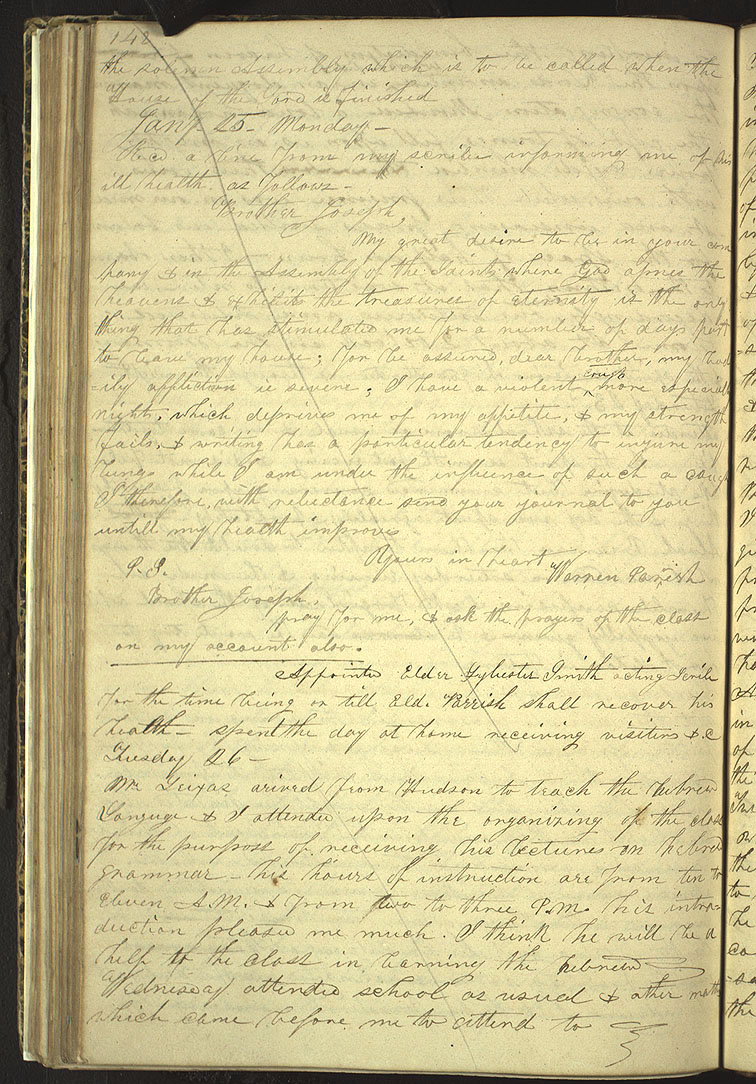 142
the solemn Assembly which is to be called when the
House of the Lord is finished
Jany 25- Monday-
Recd a line from my scribe informing me of his
ill health as follows-
Brother Joseph,
My great desire to be in your com
pany & in the Assembly of the Saints where God opens the
heavens & exhibits the treasures of eternity is the only
thing that has stimulated me for a number of days past
to leave my house; for be assured, dear brother, my bod
-ily affliction is severe; I have a violent cough more especially
nights, which deprives me of my appetite, & my strength
fails, & writing has a particular tendency to injure my
lungs while I am under the influence of such a cough
I therefore, with reluctance send your journal to you
untill my health improves
Yours in heart
Warren Parrish
P.S.
Brother Joseph,
pray for me, & ask the prayers of the class
on my account also.
Appointed Elder Sylvester Smith acting Scribe
for the time being or till Eld. Parrish shall recover his
health- spent the day at home receiving visiters &.c
Tuesday 26-
Mr Seixas arived from Hudson to teach the hebrew
Languge & I attended upon the organizing of the class
for the purposs of receiving his lectures on hebrew
grammar- his hours of instruction are from ten to
eleven A.M. & from two to three P.M. his intro-
duction pleased me much. I think he will be a
help to the class in learning the hebrew
Wednesday attended school as usual & other matters
which came before me to attend to